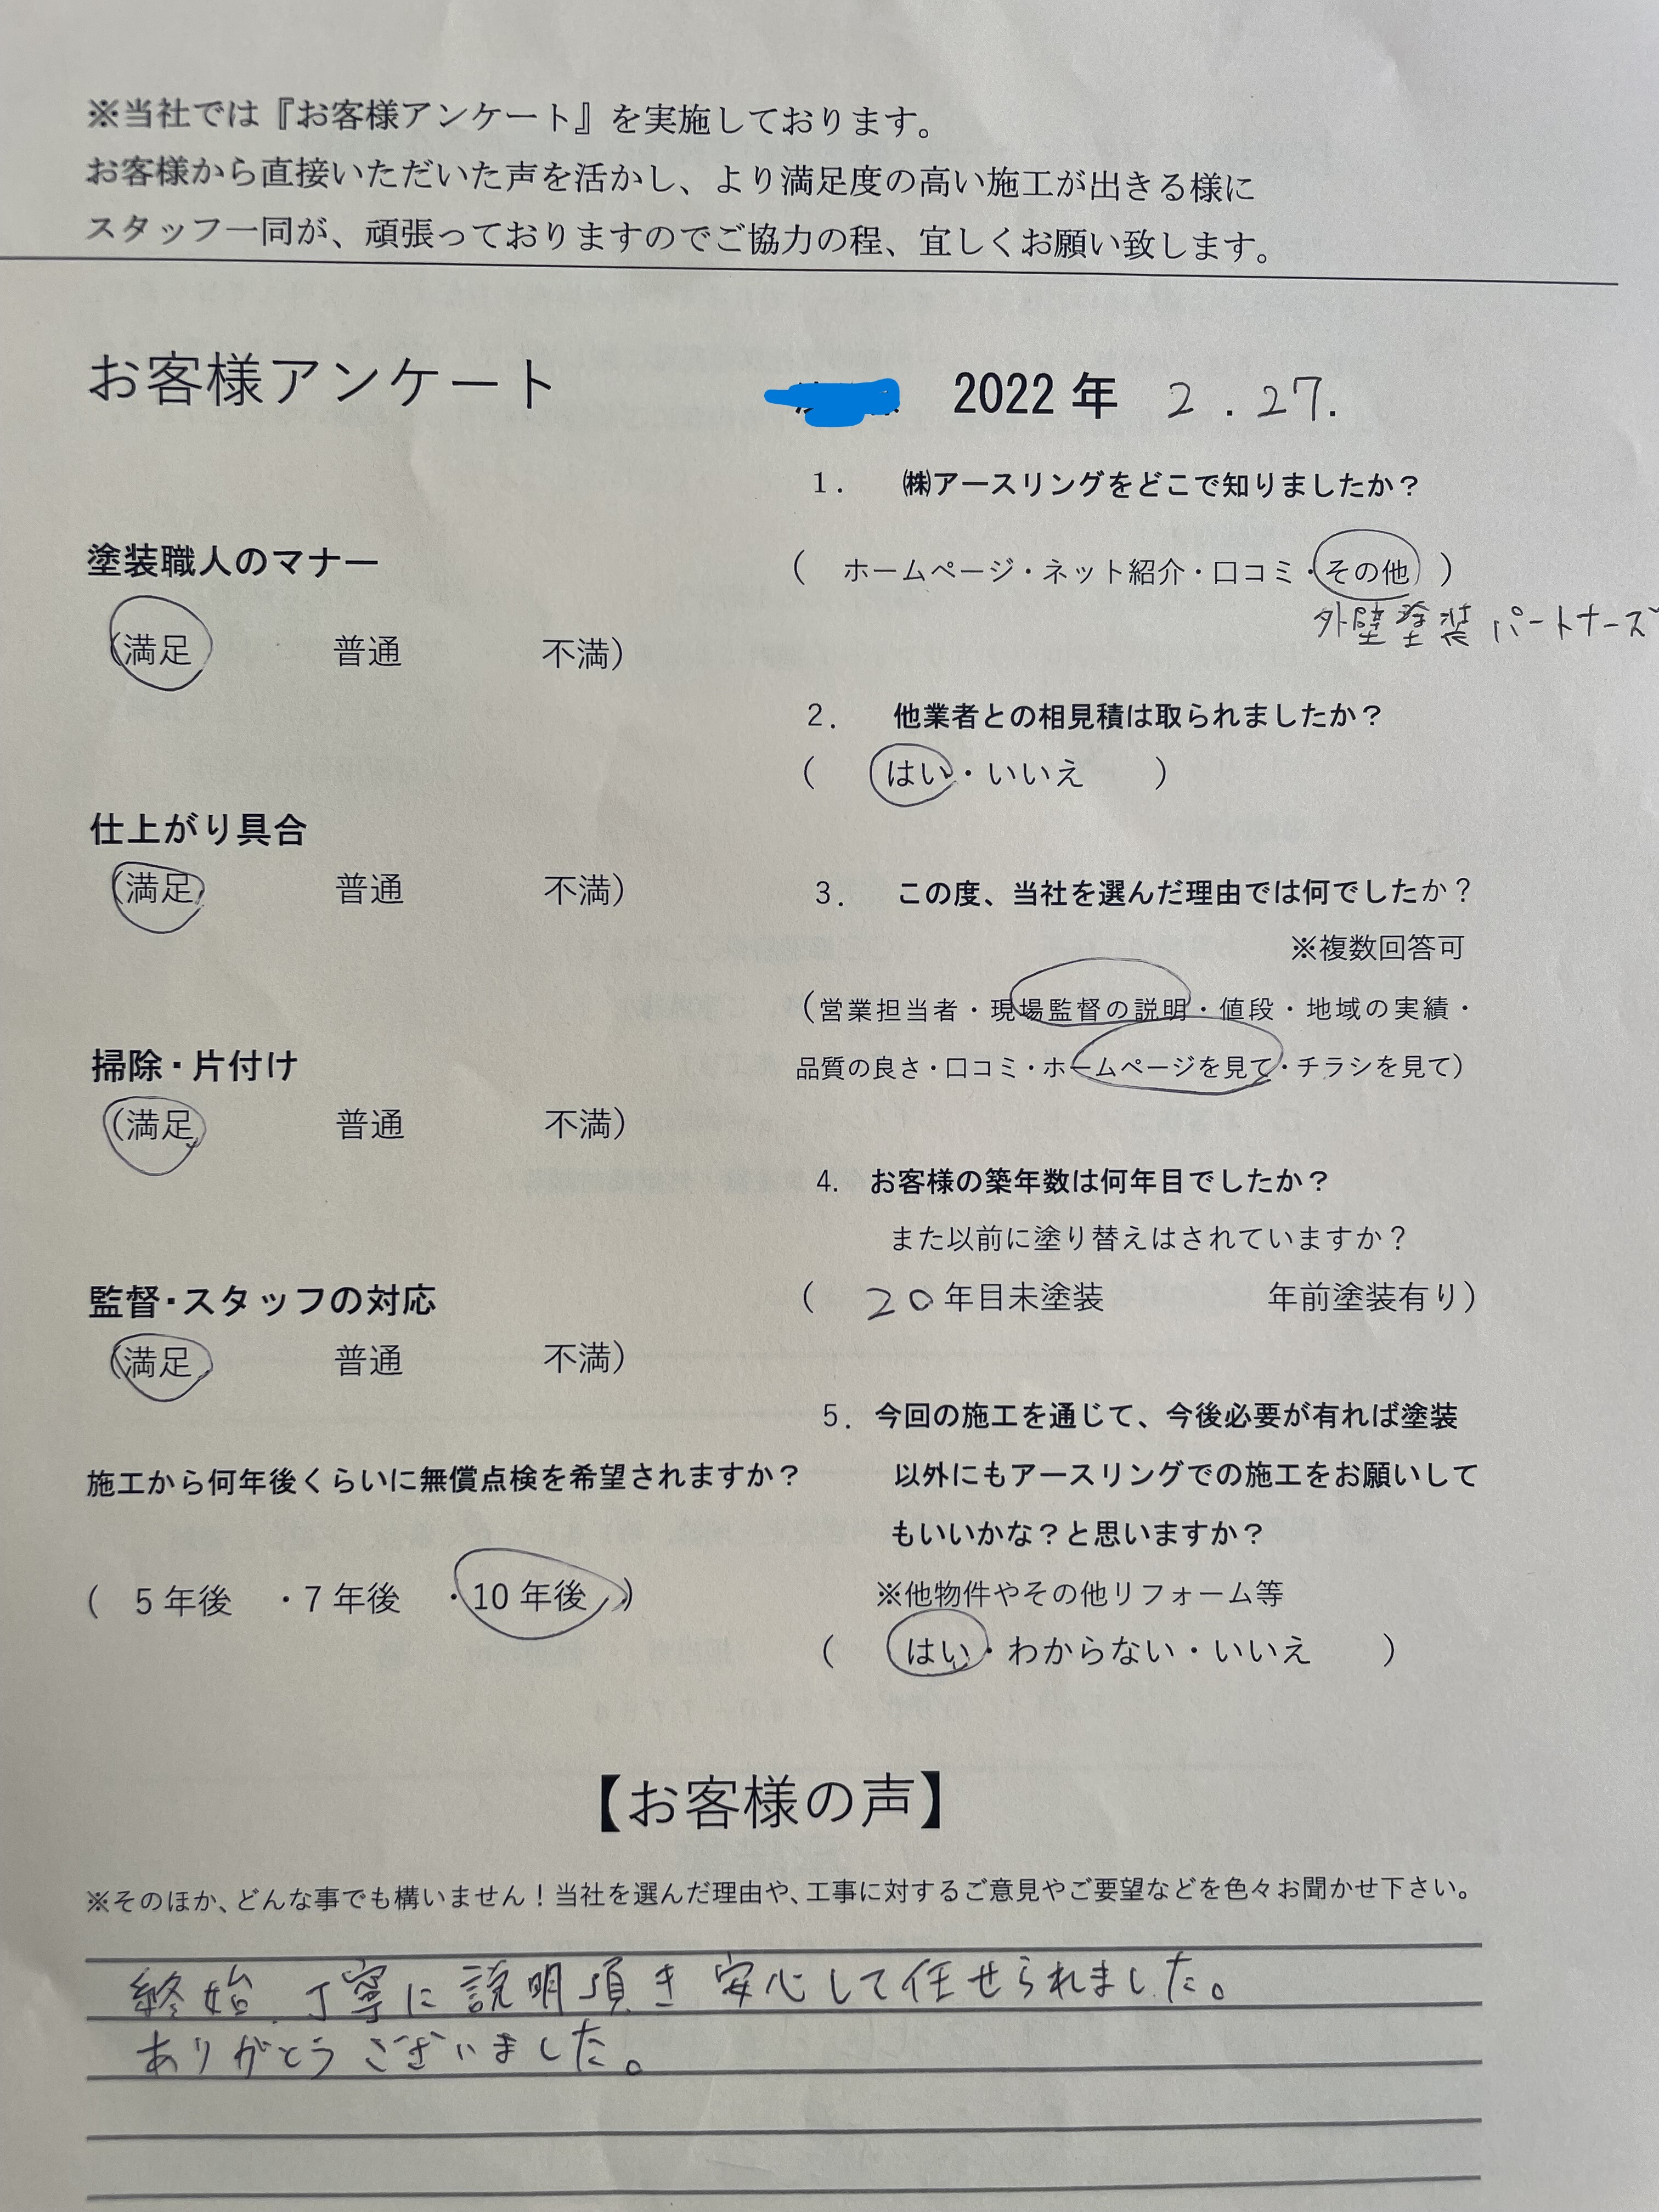 ※当社では『お客様アンケート』を実施しております。
お客様から直接いただいた声を活かし、より満足度の高い施工が出きる様に
スタッフ一同が、頑張っておりますのでご協力の程、宜しくお願い致します。
お客様アンケート
2022年 2.27.
塗装職人のマナー
(満足 普通 不満)
仕上がり具合
(満足 普通 不満)
掃除・片付け
(満足 普通 不満)
監督・スタッフの対応
(満足 普通 不満)
施工から何年後くらいに無償点検を希望されますか?
( 5年後 ・7年後 ・10年後 )
1. ㈱アースリングをどこで知りましたか?
( ホームページ・ネット紹介・口コミ・その他 )
外壁塗装パートナーズ
2. 他業者との相見積は取られましたか?
( はい・いいえ )
3. この度、当社を選んだ理由では何でしたか?
※複数回答可
(営業担当者・現場監督の説明・値段・地域の実績・
品質の良さ・口コミ・ホームページを見て・チラシを見て)
4. お客様の築年数は何年目でしたか?
また以前に塗り替えはされていますか?
( 20年目未塗装 年前塗装有り)
5. 今回の施工を通じて、今後必要が有れば塗装
以外にもアースリングでの施工をお願いして
もいいかな?と思いますか?
※他物件やその他リフォーム等
( はい・わからない・いいえ )
【お客様の声】
※そのほか、どんな事でも構いません!当社を選んだ理由や、工事に対するご意見やご要望などを色々お聞かせ下さい。
終始、丁寧に説明頂き安心して任せられました。
ありがとうございました。